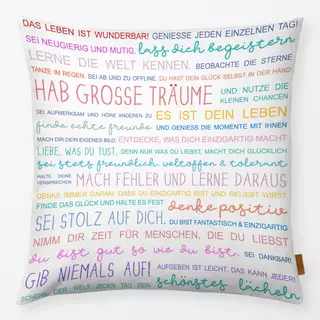 DAS LEBEN IST WUNDERBAR! GENIESSE JEDEN EINZELNEN TAG!
SEI NEUGIERIG UND MUTIG. lass dich begeistern
LERNE DIE WELT KENNEN. BEOBACHTE DIE STERNE
TANZE IM REGEN. SEI AB UND ZU OFFLINE. DU HAST DEIN GLÜCK SELBST IN DER HAND.
HAB GROSSE TRÄUME UND NUTZE DIE KLEINEN CHANCEN
SEI AUFMERKSAM UND HÖRE ANDEREN ZU ES IST DEIN LEBEN
finde echte freunde UND GENIESS DIE MOMENTE MIT IHNEN
MACH DIR DEIN EIGENES BILD. ENTDECKE, WAS DICH EINZIGARTIG MACHT
LIEBE, WAS DU TUST, DENN NUR WAS DU LIEBST, MACHT DICH GLÜCKLICH.
sei stets freundlich weltoffen & tolerant
HALTE DEINE VERSPRECHEN MACH FEHLER UND LERNE DARAUS
DENKE IMMER DARAN, DASS DU EINZIGARTIG BIST UND GELIEBT WIRST
FINDE DAS GLÜCK UND HALTE ES FEST denke positiv
SEI STOLZ AUF DICH. DU BIST FANTASTISCH & EINZIGARTIG
NIMM DIR ZEIT FÜR MENSCHEN, DIE DU LIEBST
du bist gut so wie du bist. SEI DANKBAR!
GIB NIEMALS AUF! AUFGEBEN IST LEICHT, DAS KANN JEDER!
SCHENK DER WELT JEDEN TAG DEIN schönstes lächeln